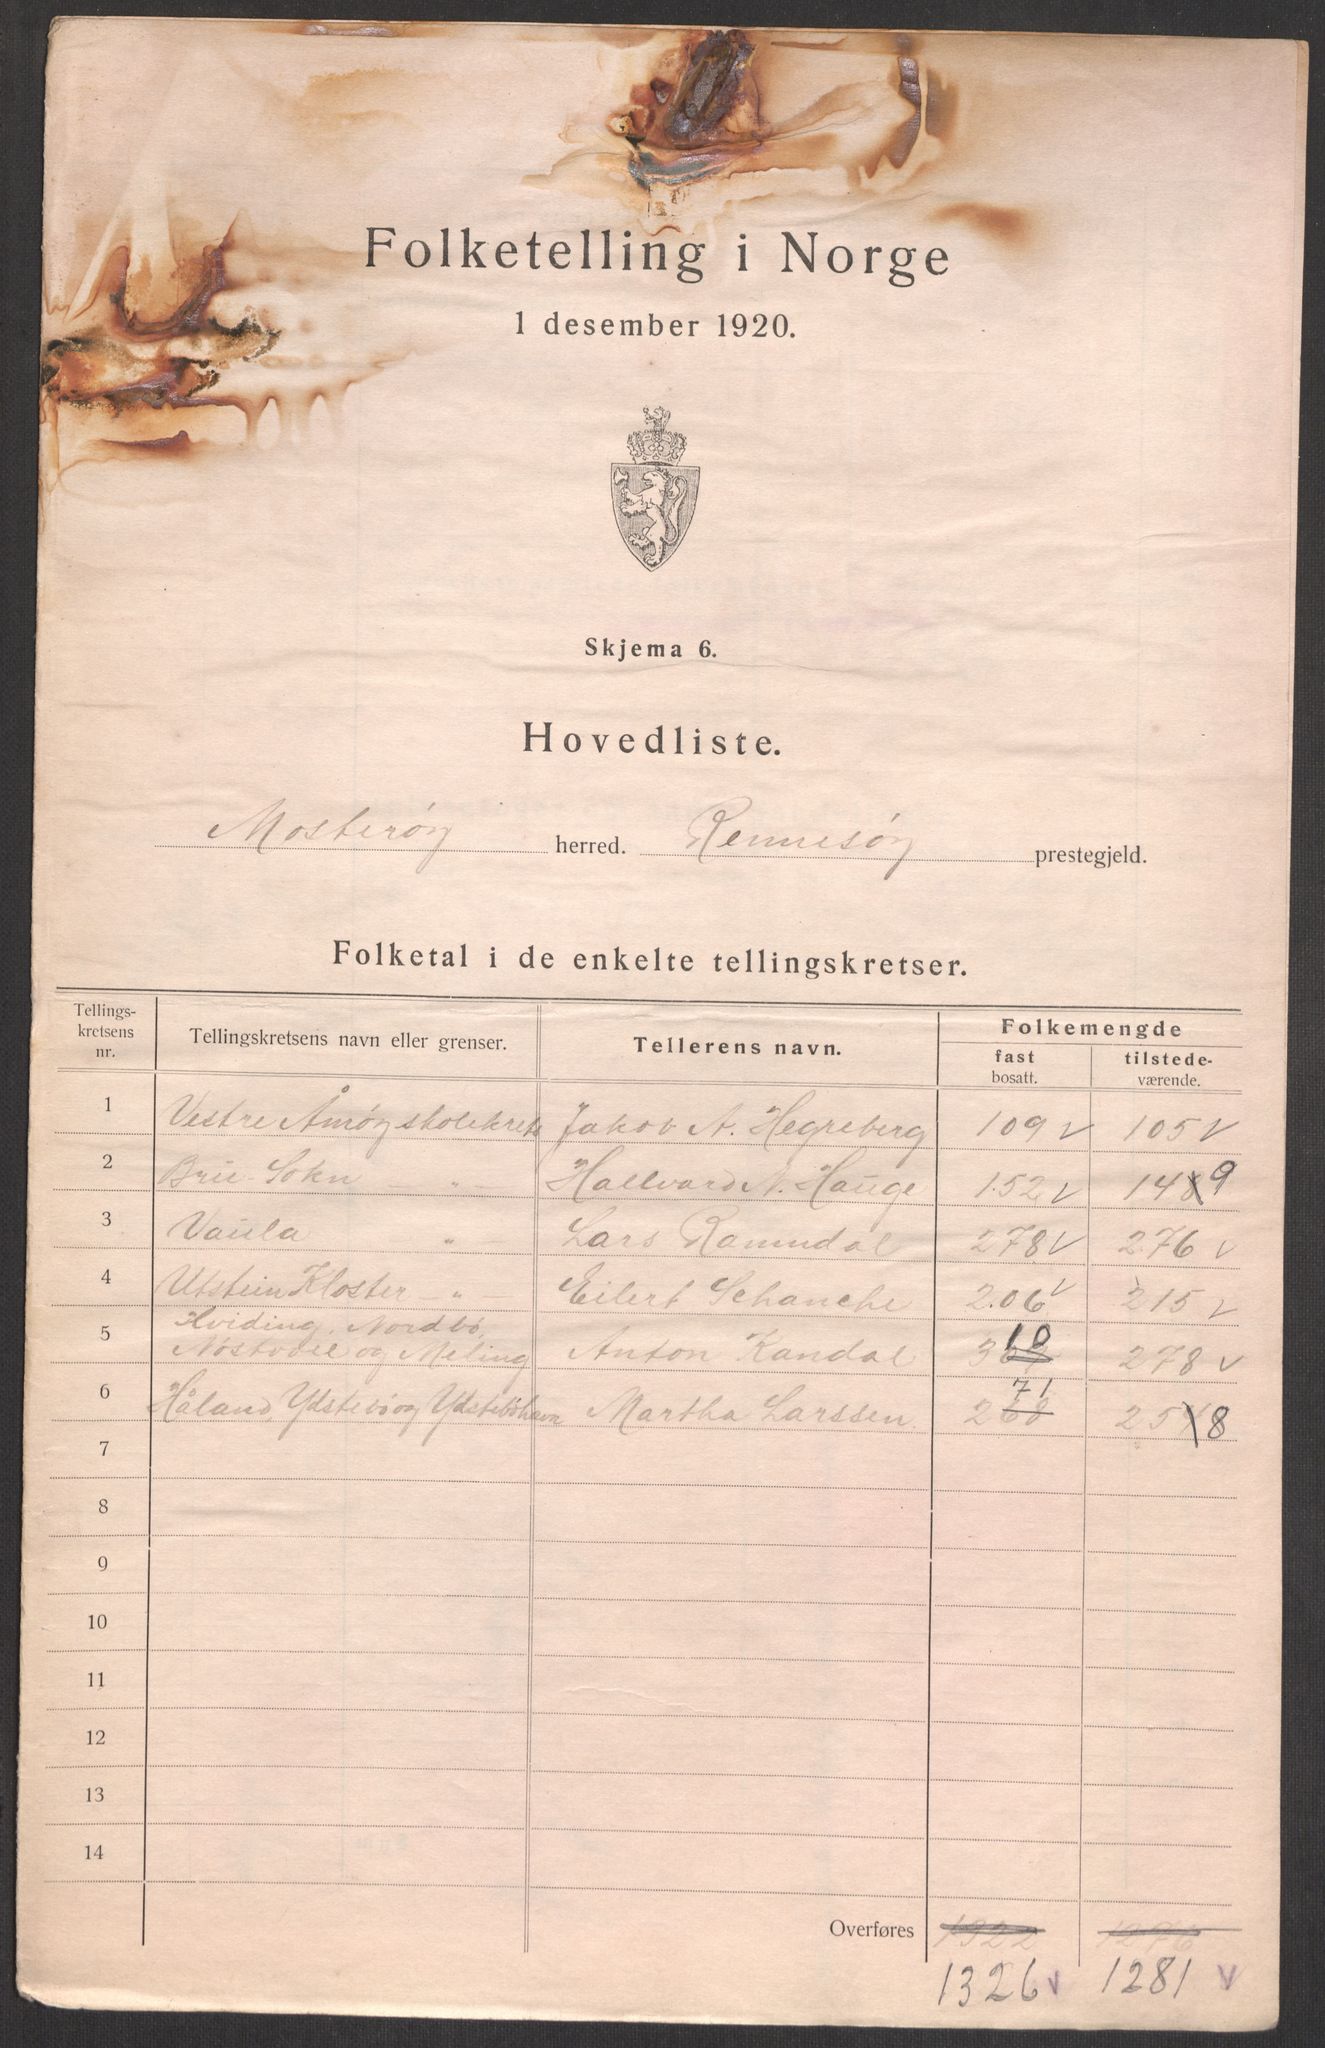 Folketelling i Norge
1 desember 1920.
Skjema 6.
Hovedliste.
Mosterøy herred. Rennesøy prestegjeld.
Folketal i de enkelte tellingskretser.
Tellings-
kretsens
nr.
Tellingskretsens navn eller grenser.
Tellerens navn.
Folkemengde
fast
bosatt.
tilstede-
værende.
1 Vestre Åmøy skolekrets Jakob A. Hegreberg 109 v 105 v
2 Bru-Sokn — " — Hallvard N. Hauge 152 v 1489
3 Vaula " — Lars Ramndal 278 v 276 v
4 Utstein Kloster — " — Eilert Schanche 206 v 215 v
10
Hviding, Nordbö,
5 Nöstvold og Meling Anton Kandal 3 278 v
71
6 Håland, Ydstebö og Ydsteböhavn Martha Larssen 268 25 8
7
8
9
10
11
12
13
14
Overføres 1322 1276
1326 v 1281 v